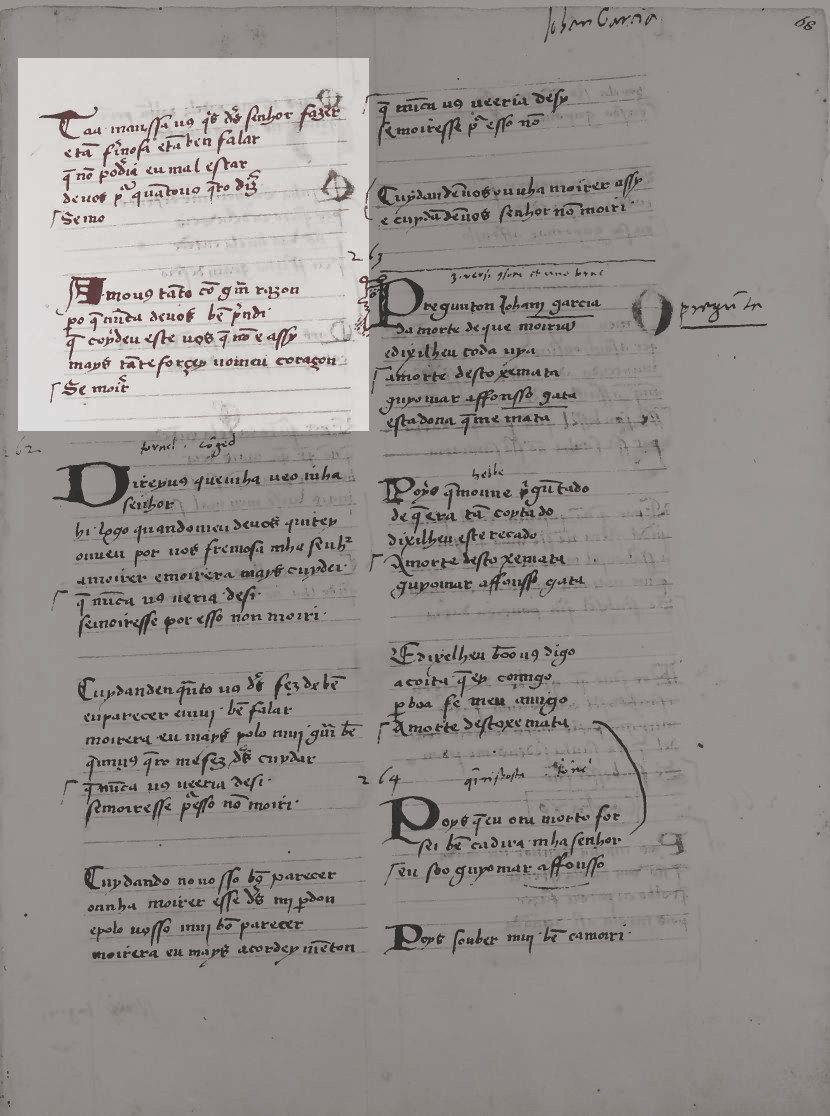 Johan Garcia
68
Taa manssa uꝯ q̃s ds̃ senhor fazer
e tã fr̃mosa e tã ben falar
q̃ nõ podia eu mal estar
de uos pr̃ quãtouo q̃ro diz̃
Se mo
E mouꝯ tãto cõ gr̃m razon
po q̃ nũca de uos bẽ pr̃ndi
q̃ coydeu este uos q̃ nõ e assy
mays
coraçon
Se moir̃
262
tornel
Direyuꝯ que mha ueo mha
senhor
hi logo quando meu de uos quitey
ouueu por uos fremosa mha senh̃
a moirer e moirera mays cuydei
q̃ nũca uꝯ ueria desi
se moiresse por esso non moiri
Cuydanden quãto uꝯ ds̃ fez de bẽ
en parecer e muj bẽ falar
moirera eu mays polo muj grã bẽ
q̃ muꝯ q̃ro me fez ds̃ cuydar
q̃ nũca uꝯ ueeria desi
se moiresse p̃ esso nõ moiri
Cuydando no uosso bõ parecer
ouuha moirer esse ds̃ mi perdon
e polo uosso muj bõ parecer
moirera eu mays acordey mẽton
q̃ nũca uꝯ ueeria desy
se moiresse pr̃ esso nõ
Cuydandẽ uos ouuha moirer assy
e cuydãdẽ uos senhor nõ moiri
263
Pregunton Johan garcia
da morte de que moiria
e dixilheu toda uya
a morte desto xe mata
guyomar affonsso gata
esta dona q̃ me mata
pregũta
Poys q̃ mouue pr̃gũtado
de q̃ era tã coytado
dixilheu este recado
A morte desto xe mata
guyomar affonsso gata
E dixelheu bõo uꝯ digo
a coita q̃ ey comigo
p̱ boa fe meu amigo
A morte desto xe mata
264
Poys q̃ eu ora morto for
sei bẽ ca dira mha senhor
eu soo guyomar affonsso
Poys souber muj bẽ ca moiri